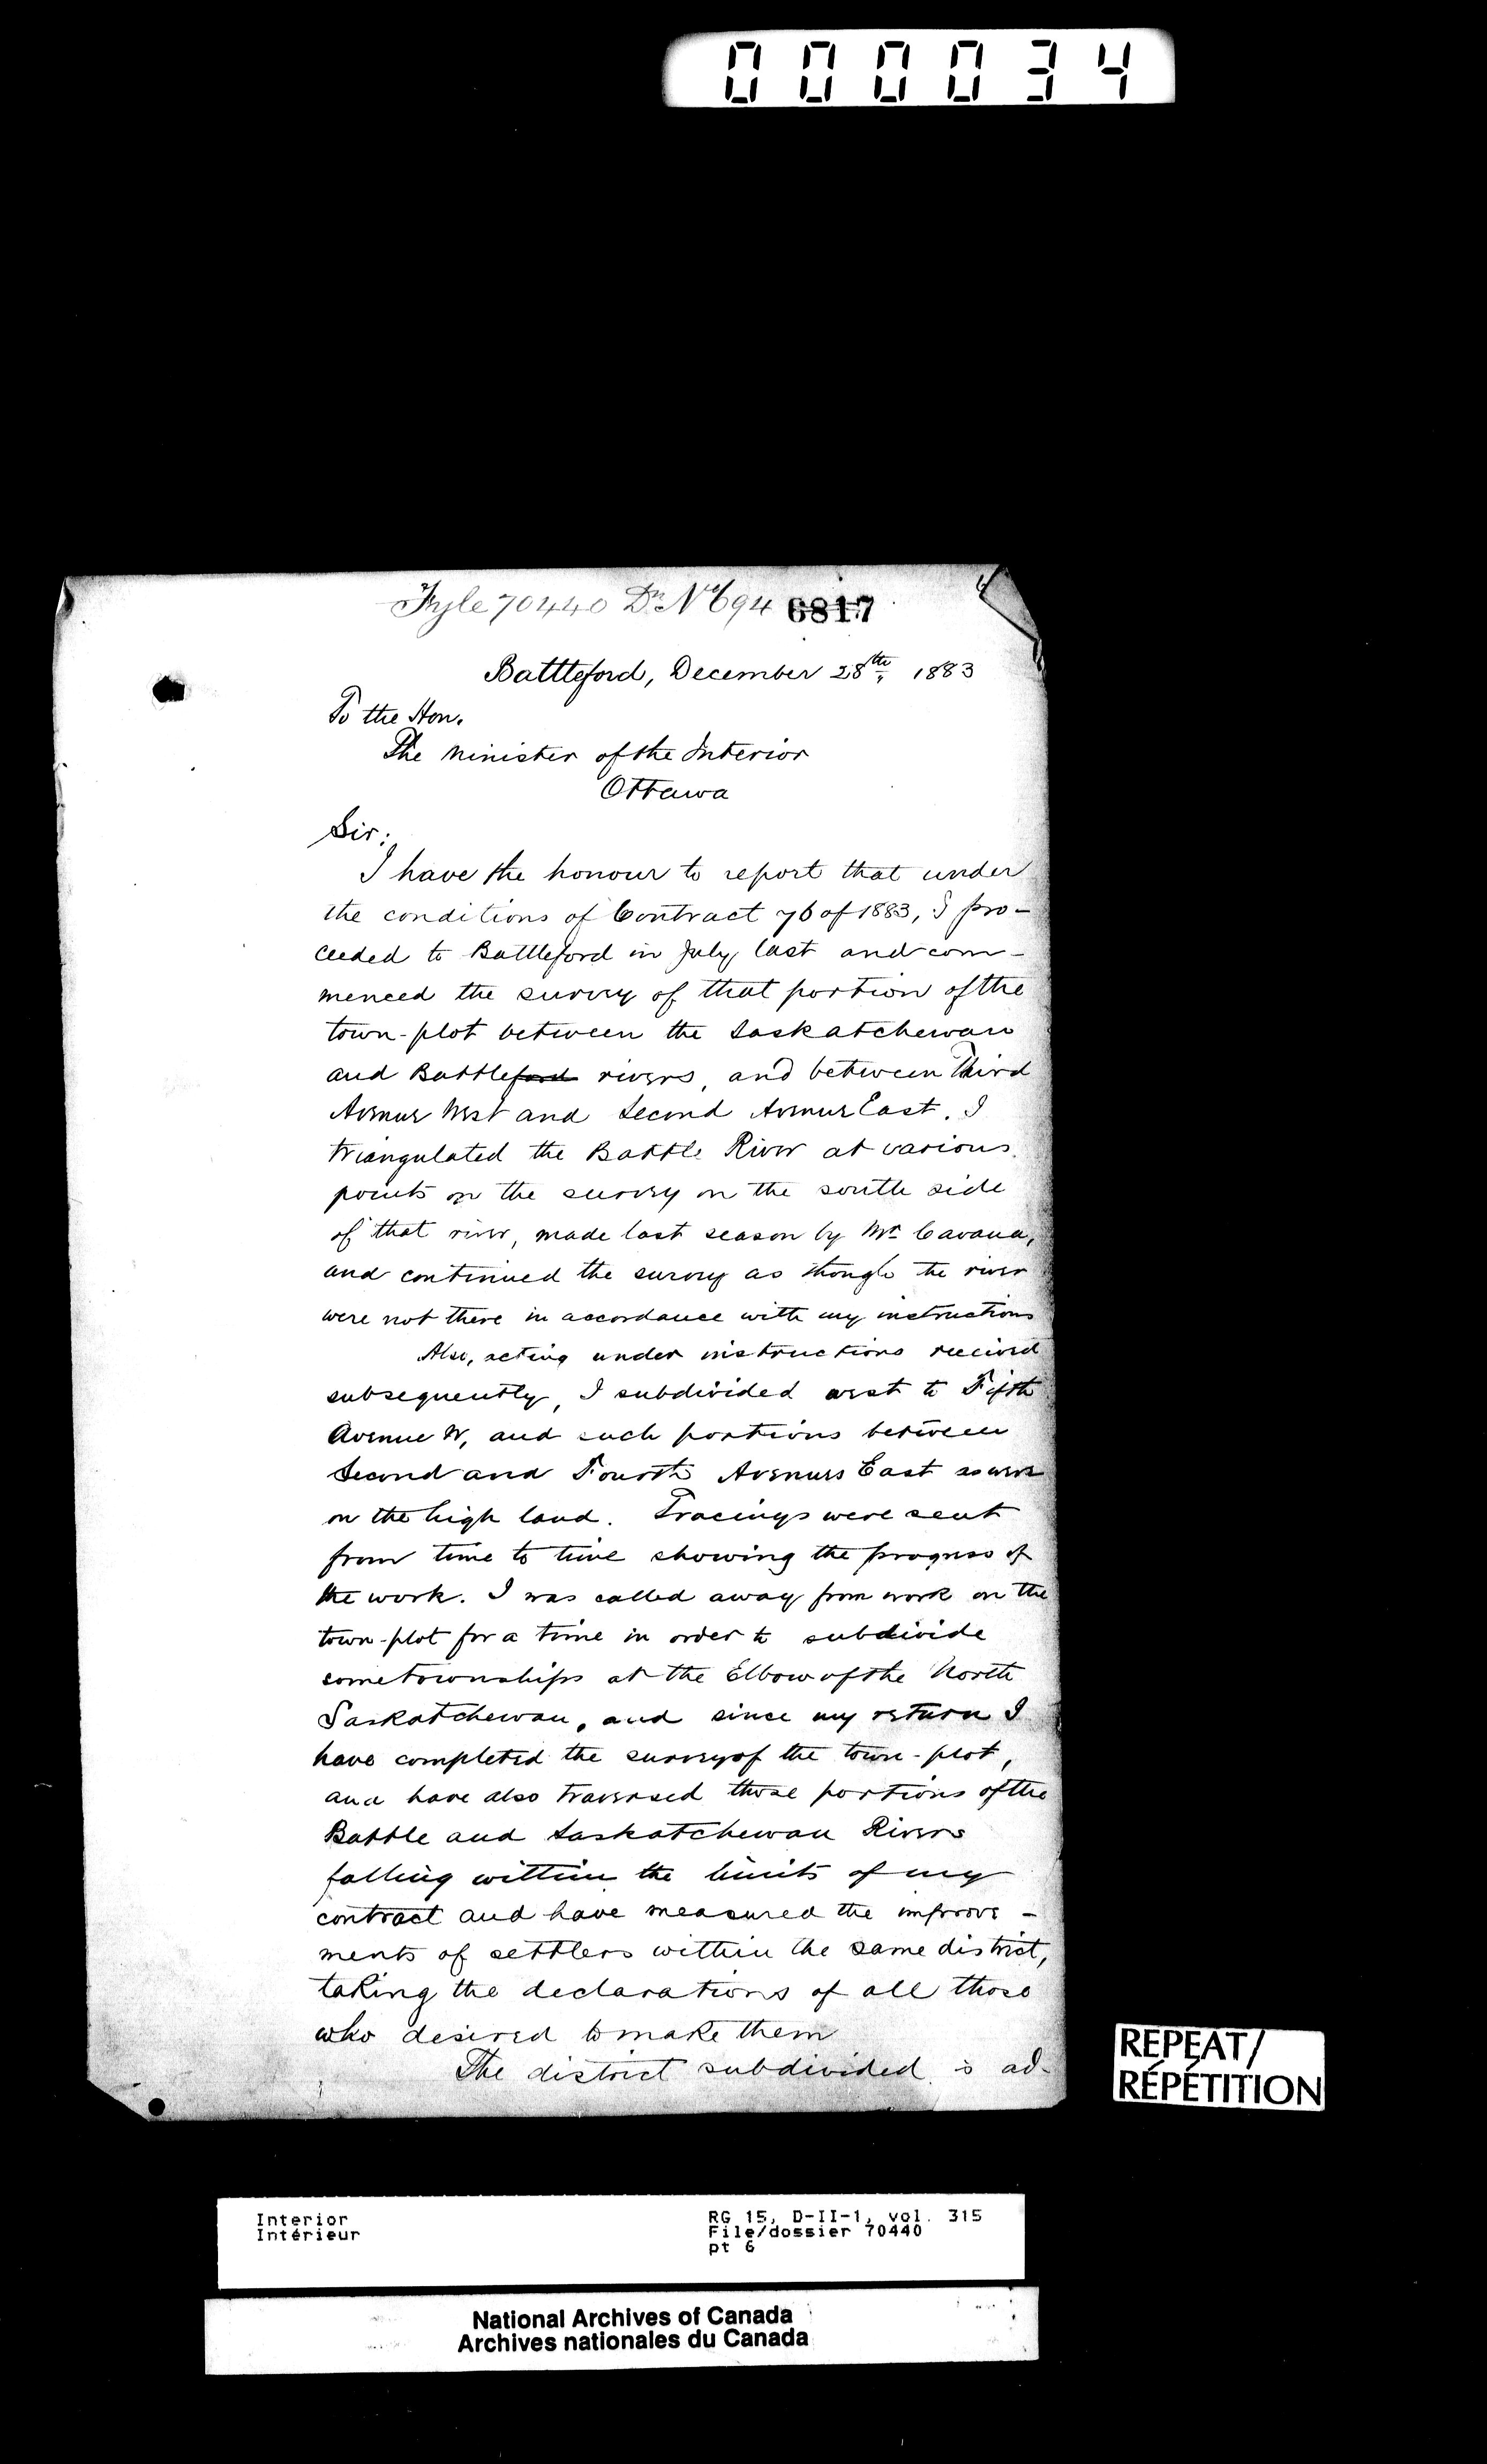 000034
Fyle 70440 Dr. No 694 6817
Battleford, December 28th, 1883
To the Hon.
The Minister of the Interior
Ottawa
Sir:
I have the honour to report that under
the conditions of Contract 76 of 1883, I pro-
ceeded to Battleford in July last and com-
menced the survey of that portion of the
town-plot between the Saskatchewan
and Battleford rivers, and between Third
Avenue West and Second Avenue East. I
triangulated the Battle River at various
points on the survey on the south side
of that river, made last season by Mr. Cavana,
and continued the survey as though the river
were not there in accordance with my instructions
Also, acting under instructions received
subsequently, I subdivided west to Fifth
Avenue W, and such portions between
Second and Fourth Avenues East as were
on the high land. Tracings were sent
from time to time showing the progress of
the work. I was called away from work on the
town-plot for a time in order to subdivide
some townships at the Elbow of the North
Saskatchewan, and since my return I
have completed the survey of the town-plot,
and have also traversed those portions of the
Battle and Saskatchewan Rivers
falling within the limits of my
contract and have measured the improve-
ments of settlers within the same district,
taking the declarations of all those
who desired to make them
The district subdivided is ad-
REPEAT/
RÉPÉTITION
Interior
Intérieur
RG 15, D-II-1, vol. 315
File/dossier 70440
pt 6
National Archives of Canada
Archives nationales du Canada